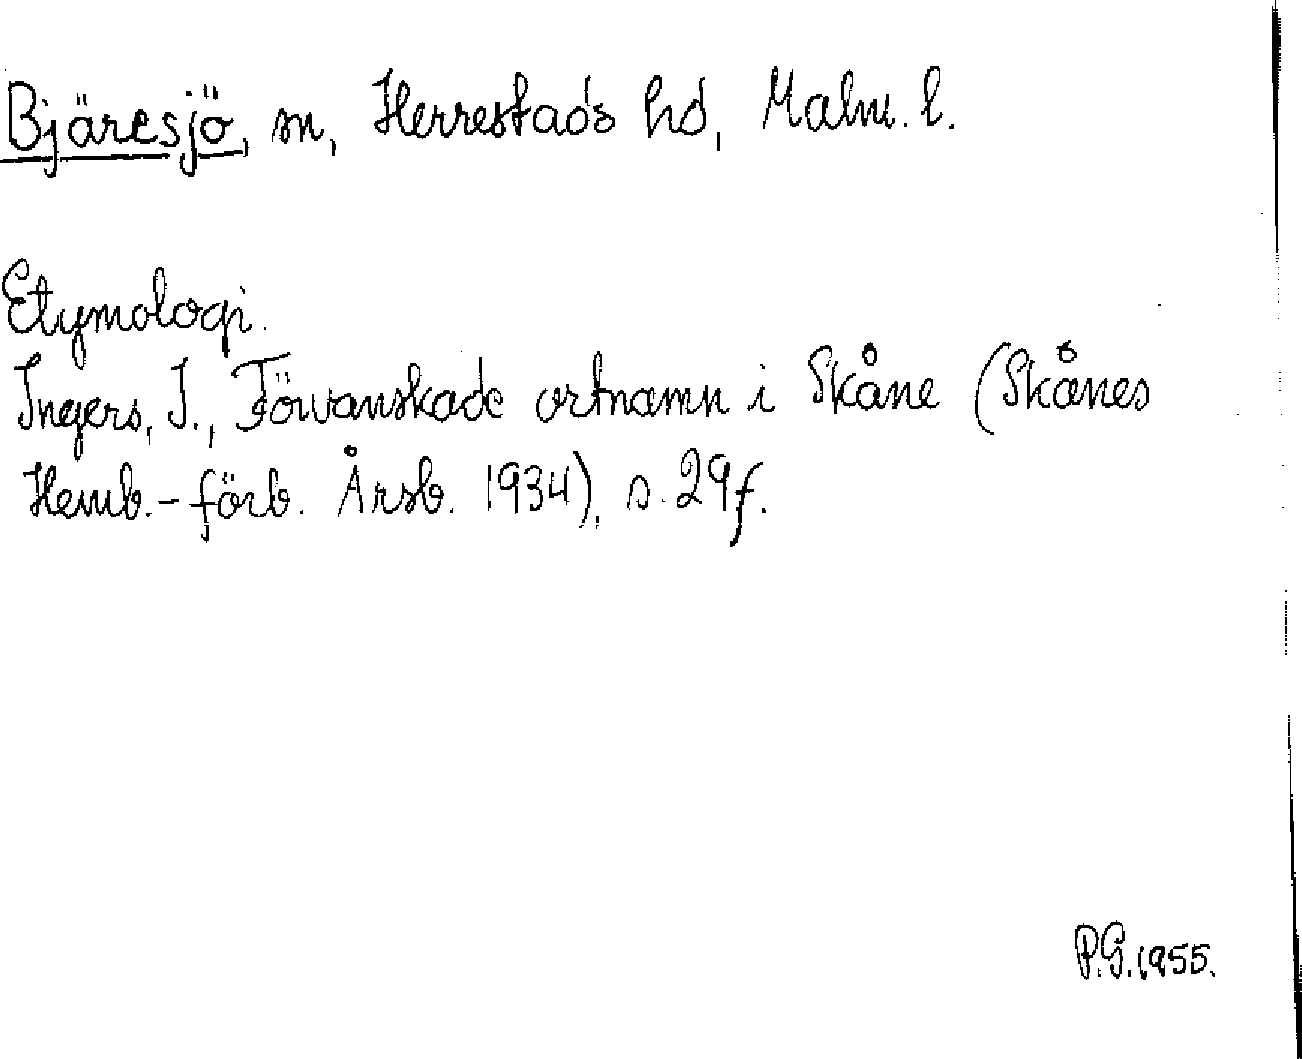 Bjäresjö, sn, Herrestads hd, Malm. l.
Etymologi.
Ingers, I., Förvanskade ortnamn i Skåne (Skånes
Hemb.-förb. Årsb. 1934), s. 29f.
P.G. 1955.